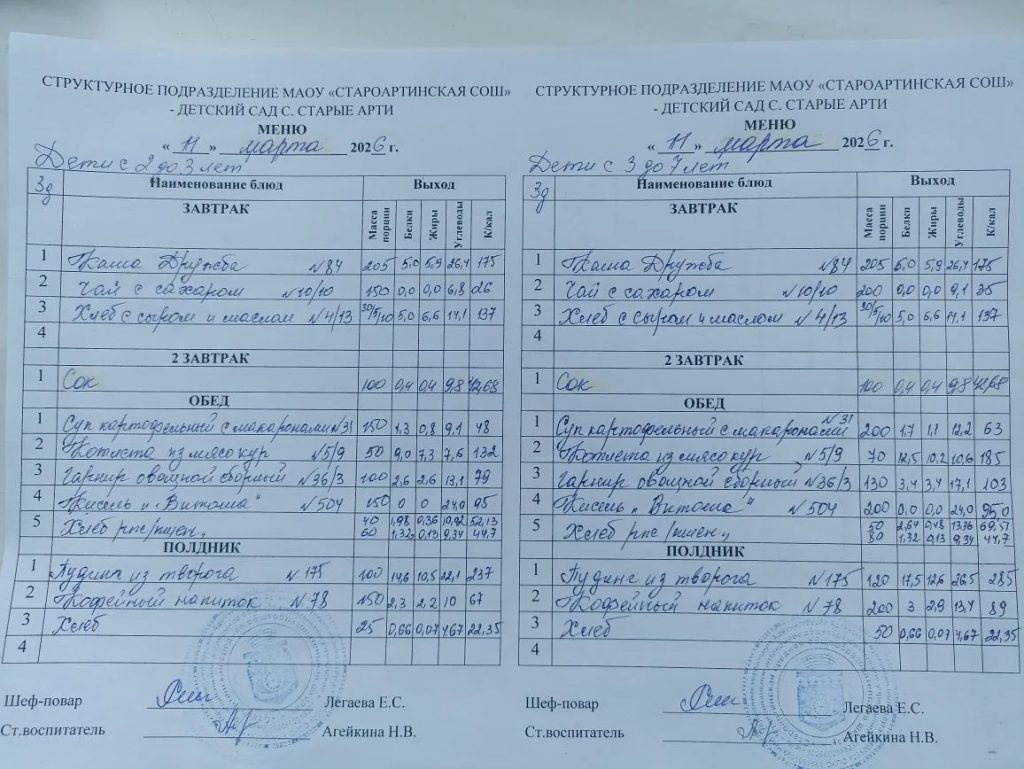 СТРУКТУРНОЕ ПОДРАЗДЕЛЕНИЕ МАОУ «СТАРОАРТИНСКАЯ СОШ»
- ДЕТСКИЙ САД С. СТАРЫЕ АРТИ
МЕНЮ
« 11 » марта 2026 г.
Дети с 2 до 3 лет
3д Наименование блюд Выход
ЗАВТРАК Масса порции Белки Жиры Углеводы К/кал
1 Каша Дружба №84 205 5,0 5,9 26,4 175
2 Чай с сахаром №10/10 150 0,0 0,0 6,8 26
3 Хлеб с сыром и маслом №4/13 30/5/10 5,0 6,6 14,1 137
4
2 ЗАВТРАК
1 Сок 100 0,4 0,4 9,8 42,68
ОБЕД
1 Суп картофельный с макаронами №31 150 1,3 0,8 9,1 48
2 Котлета из мясо кур №5/9 50 9,0 7,3 7,6 132
3 Гарнир овощной сборный №36/3 100 2,6 2,6 13,1 79
4 Кисель „Витоша" №504 150 0 0 24,0 95
5 Хлеб рпс/пшен. 40 1,98 0,36 10,02 52,13
60 1,32 0,13 9,34 44,7
ПОЛДНИК
1 Пудинг из творога №175 100 14,6 10,5 22,1 237
2 Кофейный напиток №78 150 2,3 2,2 10 67
3 Хлеб 25 0,66 0,07 4,67 22,35
4
Шеф-повар Легаева Е.С.
Ст.воспитатель Агейкина Н.В.
СТРУКТУРНОЕ ПОДРАЗДЕЛЕНИЕ МАОУ «СТАРОАРТИНСКАЯ СОШ»
- ДЕТСКИЙ САД С. СТАРЫЕ АРТИ
МЕНЮ
« 11 » марта 2026 г.
Дети с 3 до 7 лет
3д Наименование блюд Выход
ЗАВТРАК Масса порции Белки Жиры Углеводы К/кал
1 Каша Дружба №84 205 5,0 5,9 26,4 175
2 Чай с сахаром №10/10 200 0,0 0,0 9,1 35
3 Хлеб с сыром и маслом №4/13 30/5/10 5,0 6,6 14,1 137
4
2 ЗАВТРАК
1 Сок 100 0,4 0,4 9,8 42,68
ОБЕД
1 Суп картофельный с макаронами №31 200 1,7 1,1 12,2 63
2 Котлета из мясо кур №5/9 70 12,5 10,2 10,6 185
3 Гарнир овощной сборный №36/3 130 3,4 3,4 17,1 103
4 Кисель „Витоша" №504 200 0,0 0,0 24,0 95,0
5 Хлеб рпс/пшен. 50 2,64 0,48 13,36 69,51
30 1,32 0,13 9,34 44,7
ПОЛДНИК
1 Пудинг из творога №175 120 17,5 12,6 26,5 285
2 Кофейный напиток №78 200 3 2,9 13,4 89
3 Хлеб 50 0,66 0,07 4,67 22,35
4
Шеф-повар Легаева Е.С.
Ст.воспитатель Агейкина Н.В.